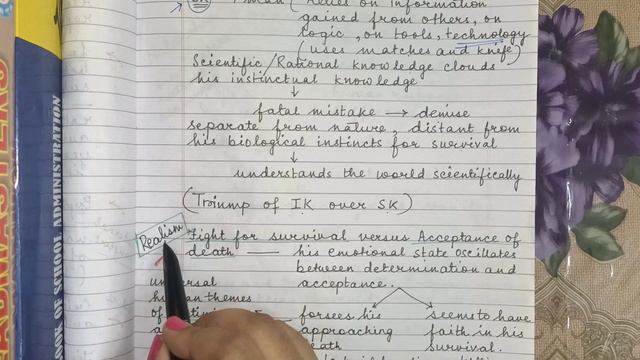 SK Man (Relies on information
gained from others, on
logic, on tools, technology
(uses matches and knife)
Scientific/Rational knowledge clouds
his instinctual knowledge
↓
fatal mistake → demise
separate from nature, distant from
his biological instincts for survival
↓
understands the world scientifically
(Triump of IK over SK)
Realism Fight for survival versus Acceptance of
death — his emotional state oscillates
between determination and
universal acceptance.
human themes
of forsees his seems to have
approaching faith in his
death survival.
OOK OF SCHOOL ADMINISTRATION